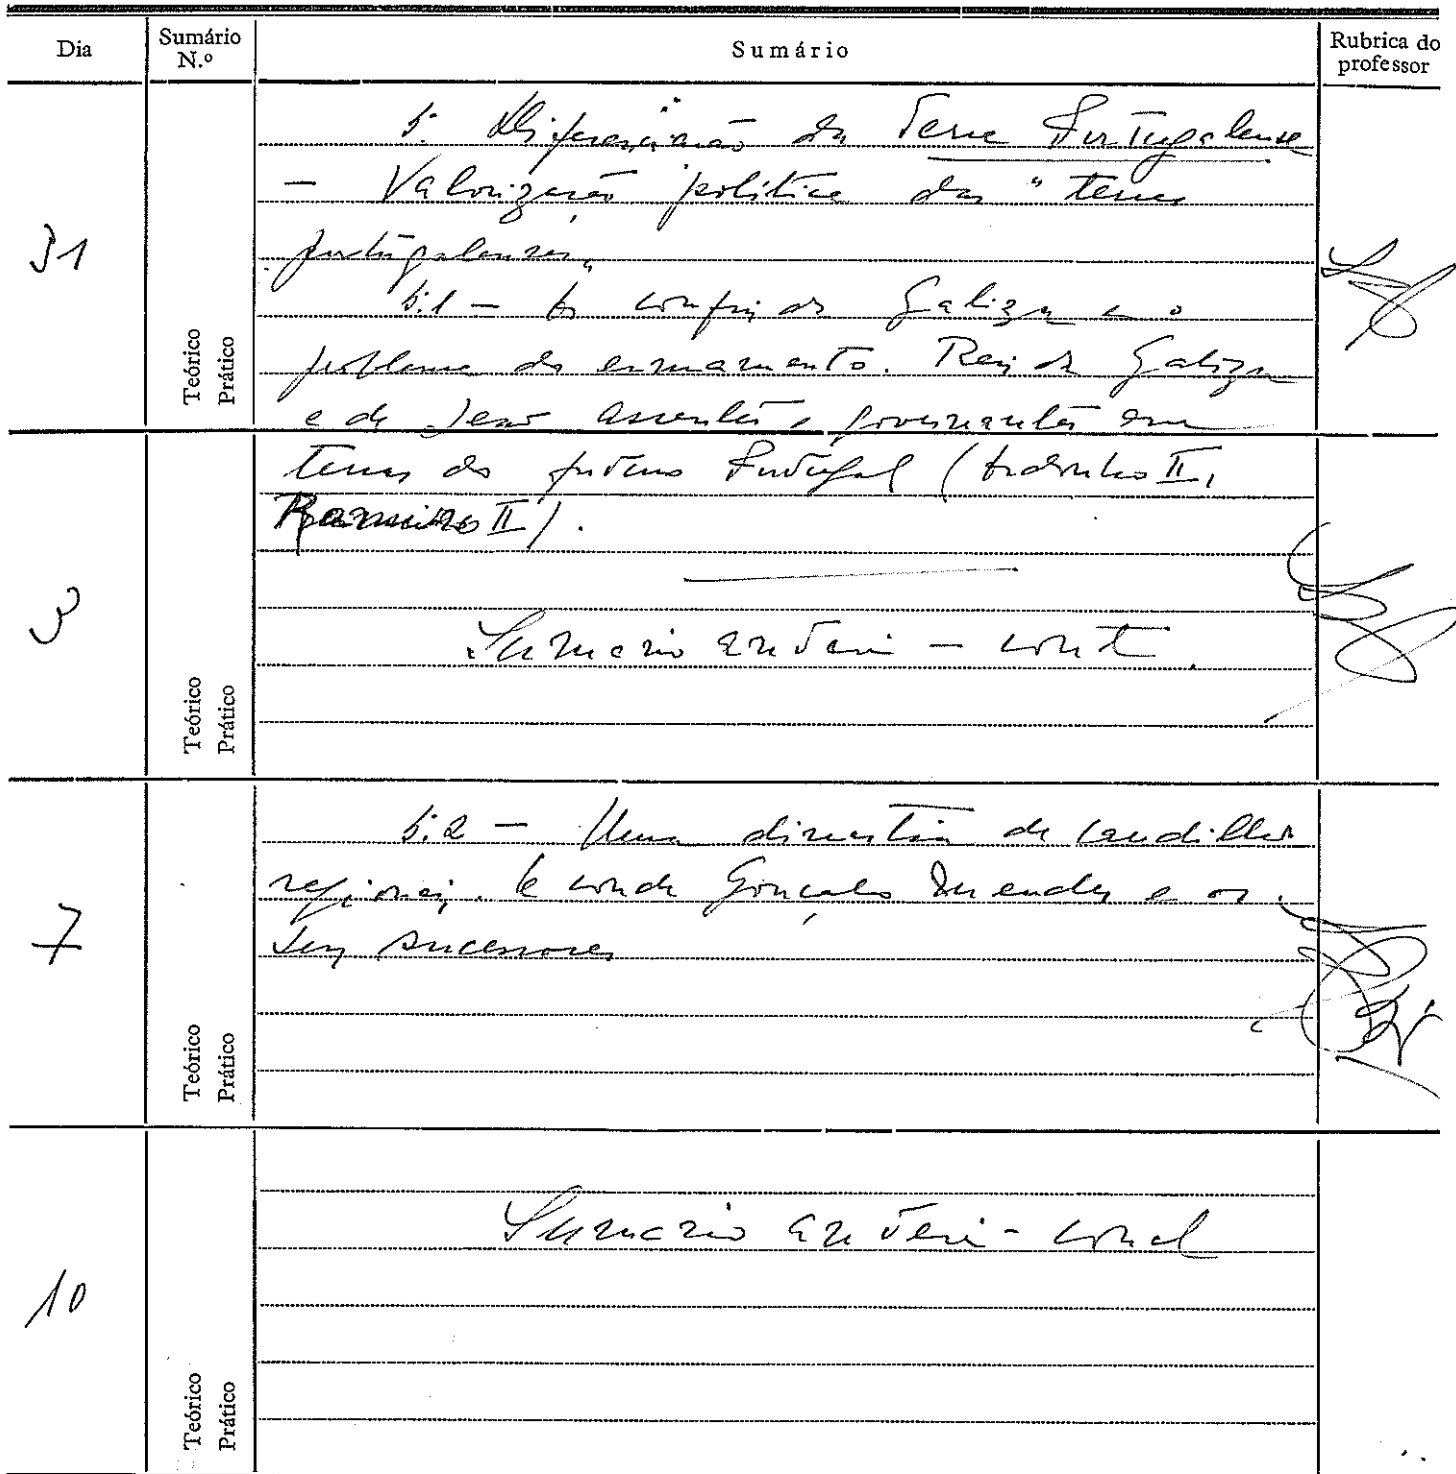 Dia
Sumário N.º
Sumário
Rubrica do professor
31
Teórico
Prático
5. Diferenciação da Terra Portugalense
- Valorização política das "terras
portugalenses"
5.1 - Os confins da Galiza e o
problema do ermamento. Reis da Galiza
e de Leão assentes e governantes em
3
Teórico
Prático
terras do futuro Portugal (Ordonho II,
Ramiro II).
Sumário anterior - cont.
7
Teórico
Prático
5.2 - Uma dinastia de caudilhos
regionais. O conde Gonçalo Mendes e os
seus sucessores
10
Teórico
Prático
Sumário anterior - concl